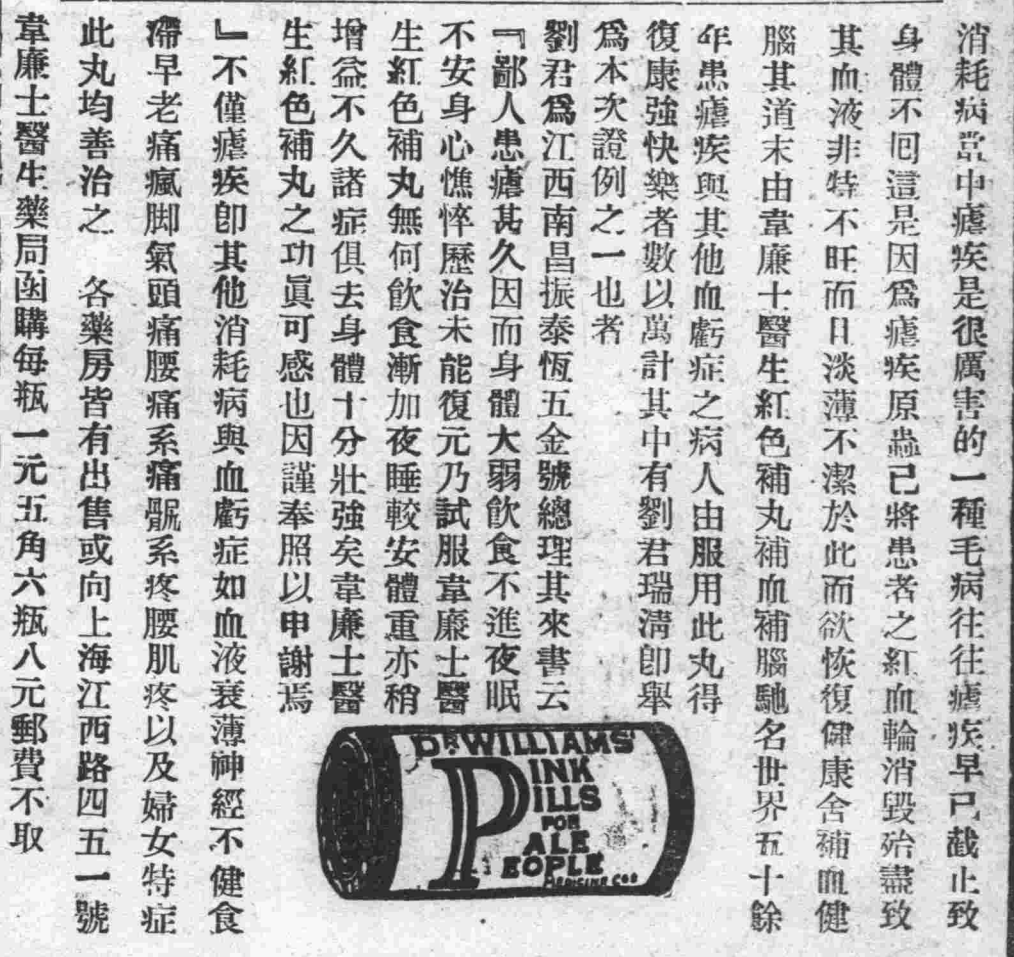 消耗病當中瘧疾是很厲害的一種毛病往往瘧疾早已截止致
身體不囘這是因爲瘧疾原蟲己將患者之紅血輪消毀殆盡致
其血液非特不旺而且淡薄不潔於此而欲恢復健康舍補血健
腦其道末由韋廉士醫生紅色補丸補血補腦馳名世界五十餘
年患瘧疾與其他血虧症之病人由服用此丸得
復康強快樂者數以萬計其中有劉君瑞淸卽舉
爲本次證例之一也者
劉君爲江西南昌振泰恆五金號總理其來書云
『鄙人患瘧甚久因而身體大弱飲食不進夜眠
不安身心憔悴歷治未能復元乃試服韋廉士醫
生紅色補丸無何飲食漸加夜睡較安體重亦稍
增益不久諸症俱去身體十分壯強矣韋廉士醫
生紅色補丸之功眞可感也因謹奉照以申謝焉
』不僅瘧疾卽其他消耗病與血虧症如血液衰薄神經不健食
滯早老痛瘋脚氣頭痛腰痛系痛臗系疼腰肌疼以及婦女特症
此丸均善治之 各藥房皆有出售或向上海江西路四五一號
韋廉士醫生藥局函購每瓶一元五角六瓶八元郵費不取
DR WILLIAMS'
PINK
PILLS
FOR
PALE
PEOPLE
MEDICINE Co